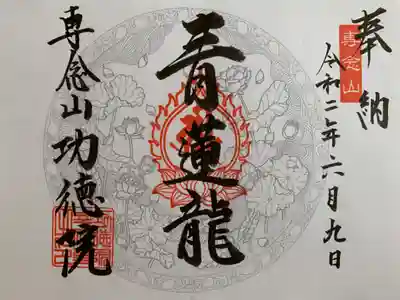 奉納
専念山
令和二年六月九日
青蓮龍
専念山功徳院